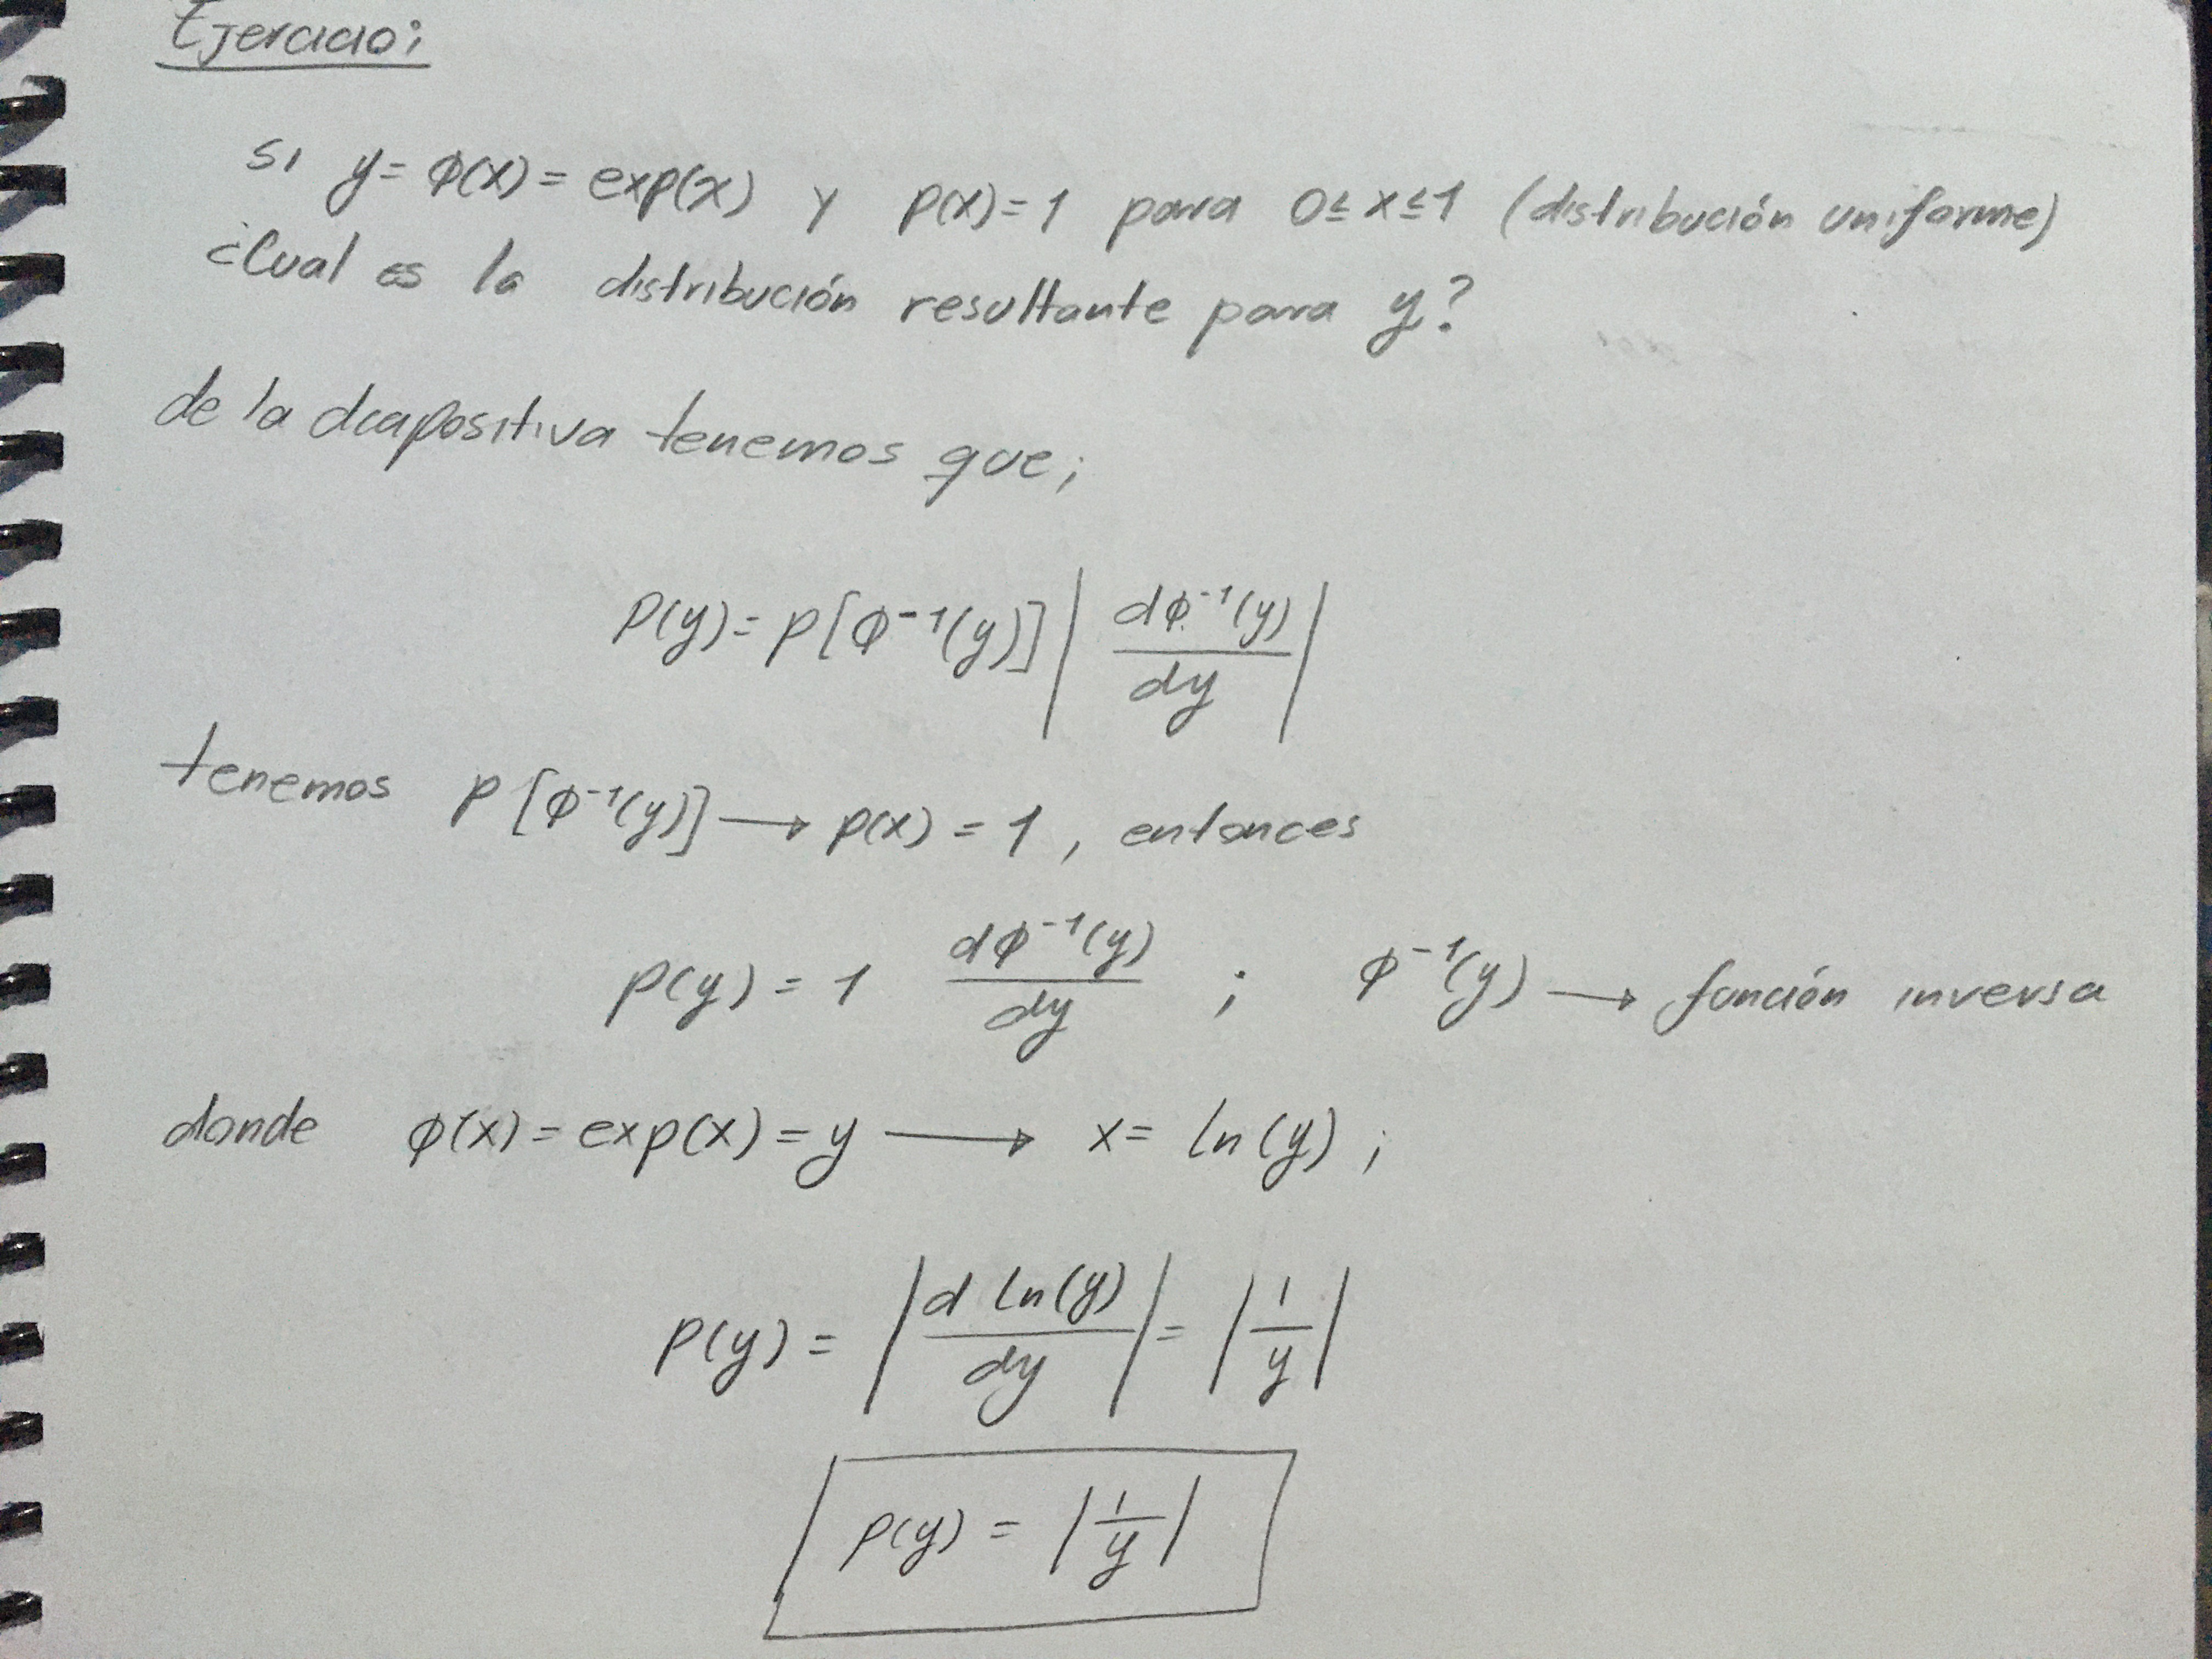 Ejercicio;
si y = ϕ(x) = exp(x) y p(x) = 1 para 0 ≤ x ≤ 1 (distribución uniforme)
¿Cual es la distribución resultante para y?
de la diapositiva tenemos que;
P(y) = p[ϕ⁻¹(y)] | dϕ⁻¹(y) / dy |
tenemos p[ϕ⁻¹(y)] → p(x) = 1, entonces
p(y) = 1 dϕ⁻¹(y) / dy ; ϕ⁻¹(y) → función inversa
donde ϕ(x) = exp(x) = y → x = ln(y);
p(y) = | d ln(y) / dy | = | 1 / y |
p(y) = | 1 / y |